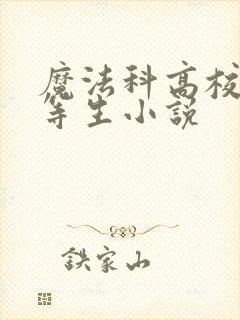 魔法科高校
等生小説
鉄家山